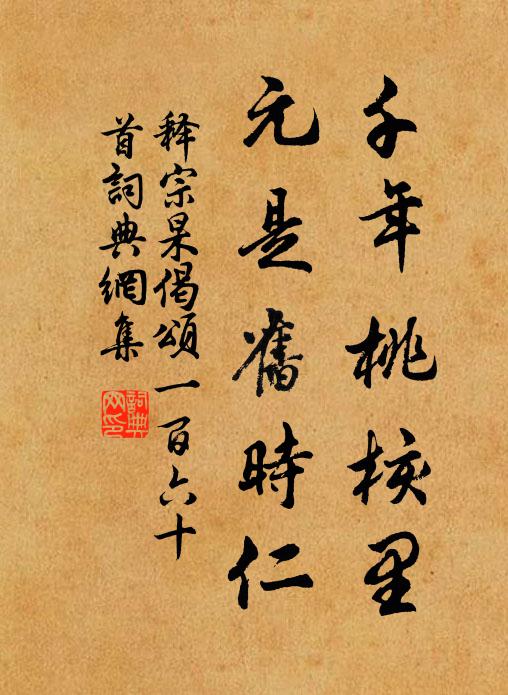 千年桃核里
元是舊時仁
释宗杲偈頌一百六十
首詞典網集
詞典网印